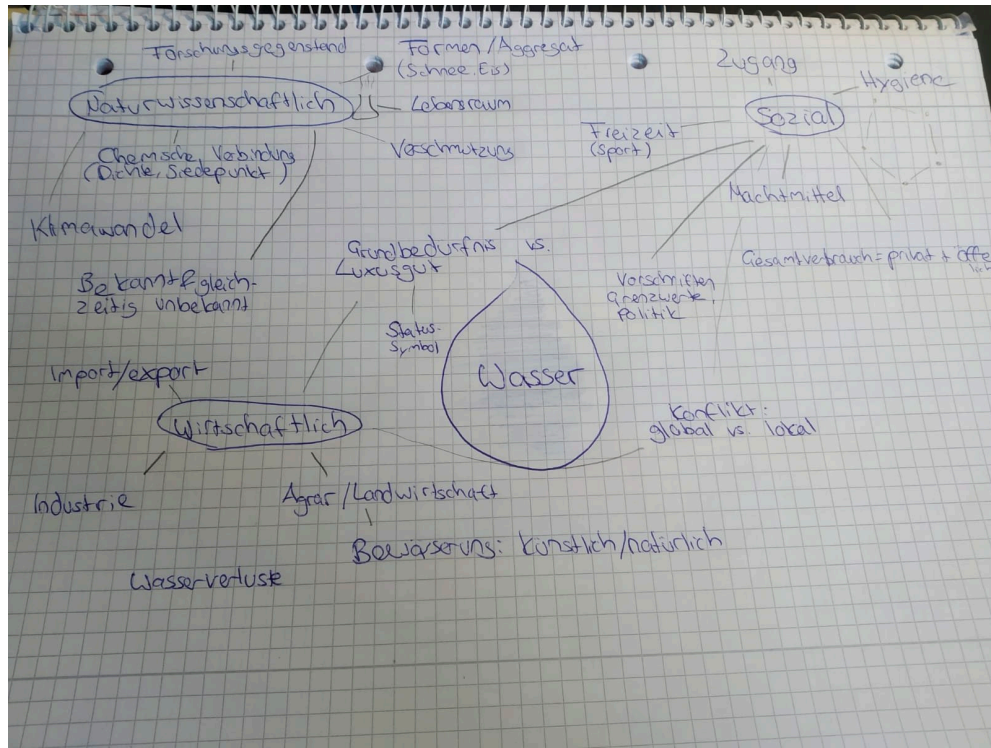 Forschungsgegenstand
Formen/Aggregat
(Schnee, Eis)
Zugang
Hygiene
Naturwissenschaftlich
Lebensraum
Sozial
Freizeit
(Sport)
Verschmutzung
Chemische Verbindung
(Dichte, Siedepunkt)
Machtmittel
Klimawandel
Grundbedürfnis vs.
Luxusgut
Gesamtverbrauch = privat + öffe
lich
Bekannt & gleich-
zeitig unbekannt
Vorschriften
Grenzwerte,
Politik
Status-
Symbol
Wasser
Import/export
Wirtschaftlich
Konflikt:
global vs. lokal
Industrie
Agrar/Landwirtschaft
Bewässerung: künstlich/natürlich
Wasserverluste